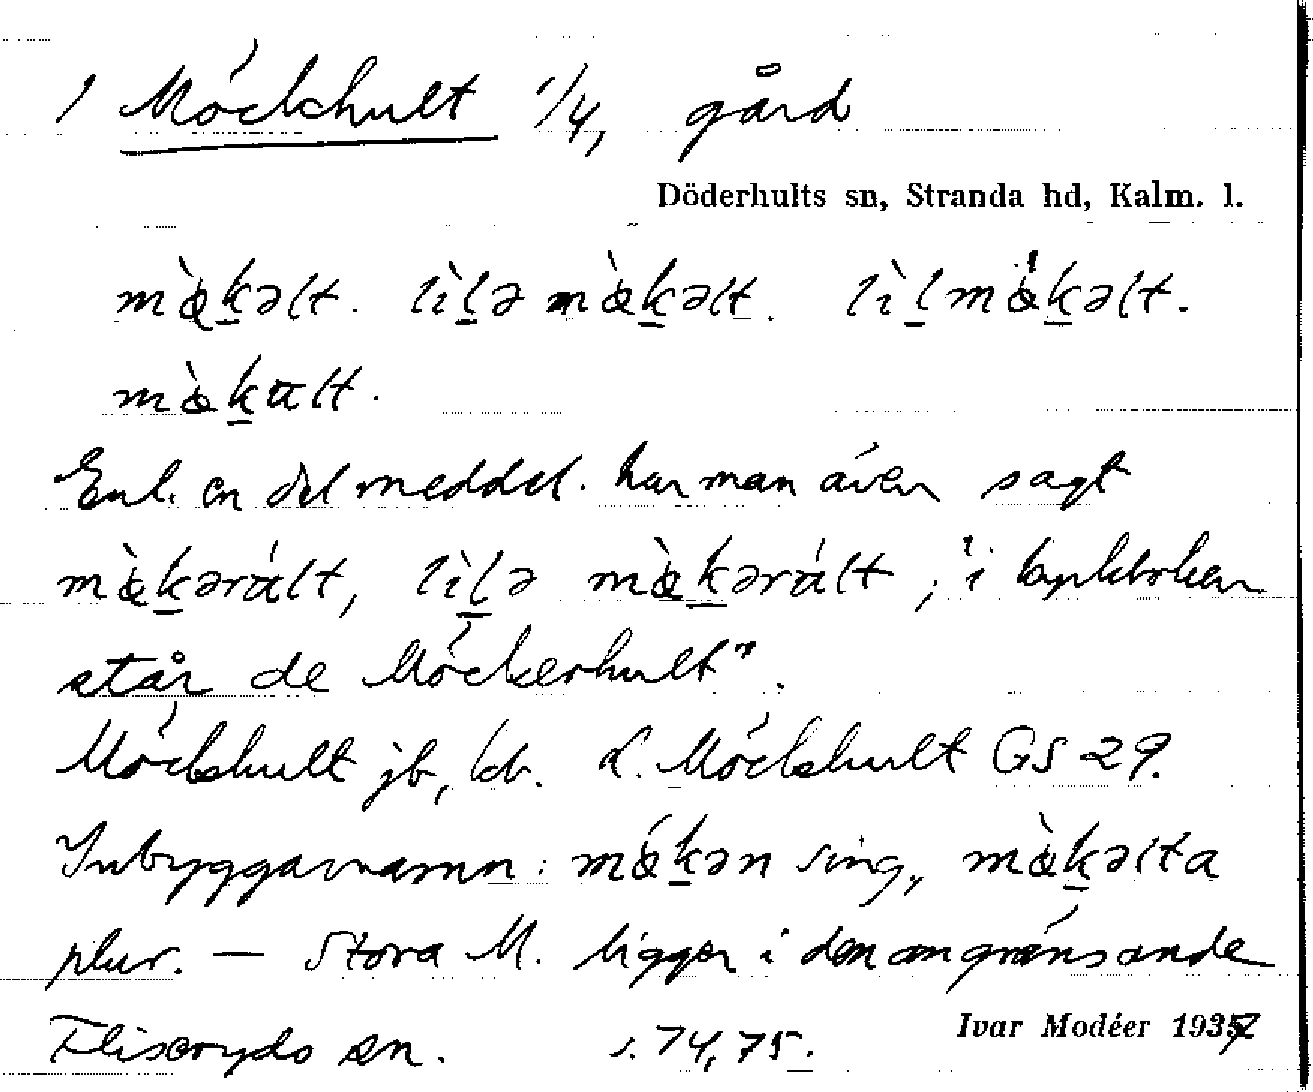 1 Möckhult 1/4, gård
Döderhults sn, Stranda hd, Kalm. l.
mœ̀k̠əlt. lìl̠ə mœ̀k̠əlt. lìl̠mœ̀k̠əlt.
mœ̀k̠ɑlt.
Enl. en del meddel. har man även sagt
mœ̀k̠ərált, lìl̠ə mœ̀k̠ərált; "i bankboken
står de Möckerhult".
Möckhult jb, kb. L. Möckhult GS 29.
Inbyggarnamn: mœ́k̠ən sing., mœ̀k̠əlta
plur. — Stora M. ligger i den angränsande
Fliseryds sn. s. 74, 75.
Ivar Modéer 1937